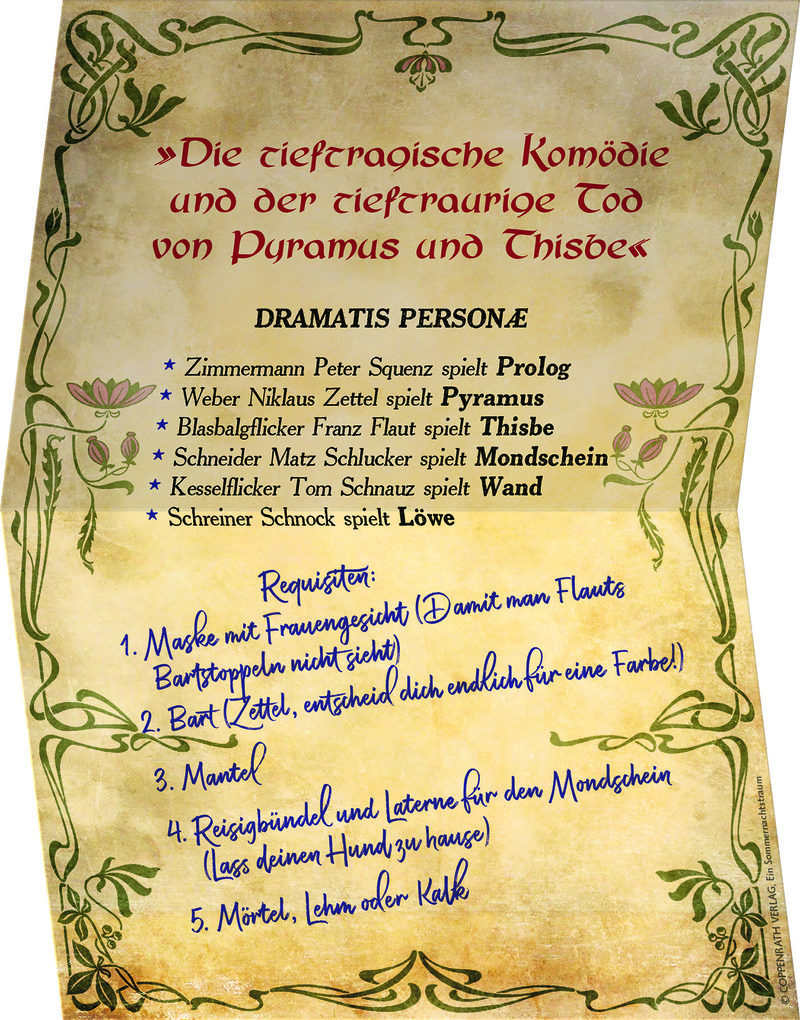 »Die tieftragische Komödie
und der tieftraurige Tod
von Pyramus und Thisbe«
DRAMATIS PERSONÆ
* Zimmermann Peter Squenz spielt Prolog
* Weber Niklaus Zettel spielt Pyramus
* Blasbalgflicker Franz Flaut spielt Thisbe
* Schneider Matz Schlucker spielt Mondschein
* Kesselflicker Tom Schnauz spielt Wand
* Schreiner Schnock spielt Löwe
Requisiten:
1. Maske mit Frauengesicht (Damit man Flauts
Bartstoppeln nicht sieht)
2. Bart (Zettel, entscheid dich endlich für eine Farbe!)
3. Mantel
4. Reisigbündel und Laterne für den Mondschein
(Lass deinen Hund zu hause)
5. Mörtel, Lehm oder Kalk
© COPPENRATH VERLAG, Ein Sommernachtstraum